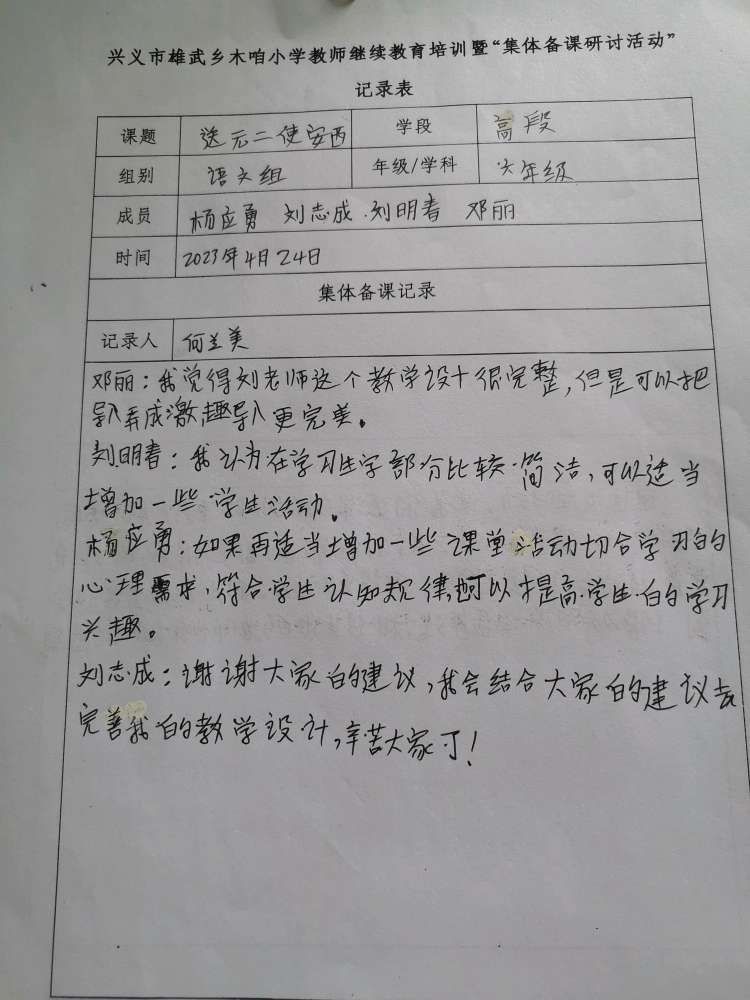 兴义市雄武乡木咱小学教师继续教育培训暨“集体备课研讨活动”
记录表
课题 送元二使安西 学段 高段
组别 语文组 年级/学科 六年级
成员 杨应勇 刘志成 刘明春 邓丽
时间 2023年4月24日
集体备课记录
记录人 何兰美
邓丽：我觉得刘老师这个教学设计很完整，但是可以把
导入弄成激趣导入更完美。
刘明春：我认为在学习生字部分比较简洁，可以适当
增加一些学生活动。
杨应勇：如果再适当增加一些课堂活动切合学习的
心理需求，符合学生认知规律，也可以提高学生的学习
兴趣。
刘志成：谢谢大家的建议，我会结合大家的建议去
完善我的教学设计，辛苦大家了！